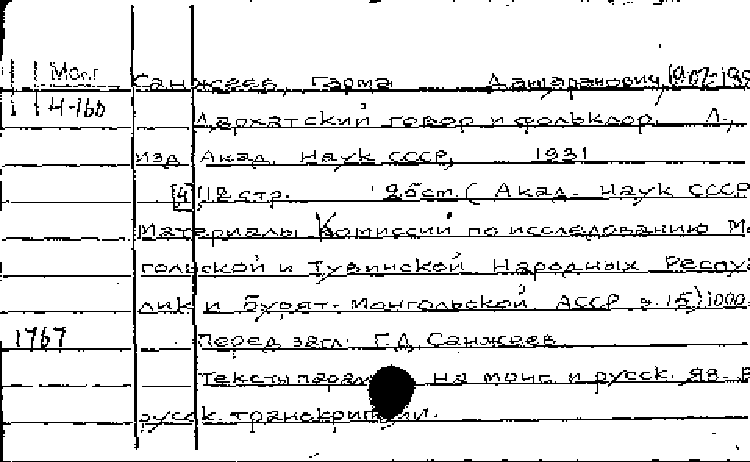 Монг
Санжеев, Гарма Данцаранович, 1902-198
Н-160
Дархатский говор и фольклор. Л.,
изд Акад. Наук СССР, 1931
[4] 112 стр. 25 см. (Акад. Наук СССР
Материалы Комиссии по исследованию Мо
гольской и Тувинской Народных Респуб
лик и Бурят-Монгольской АССР в. 15) 1000
1767
Перед загл. Г.Д. Санжеев
Тексты парал на монг. и русск. яз. В
русск. транскрипции.